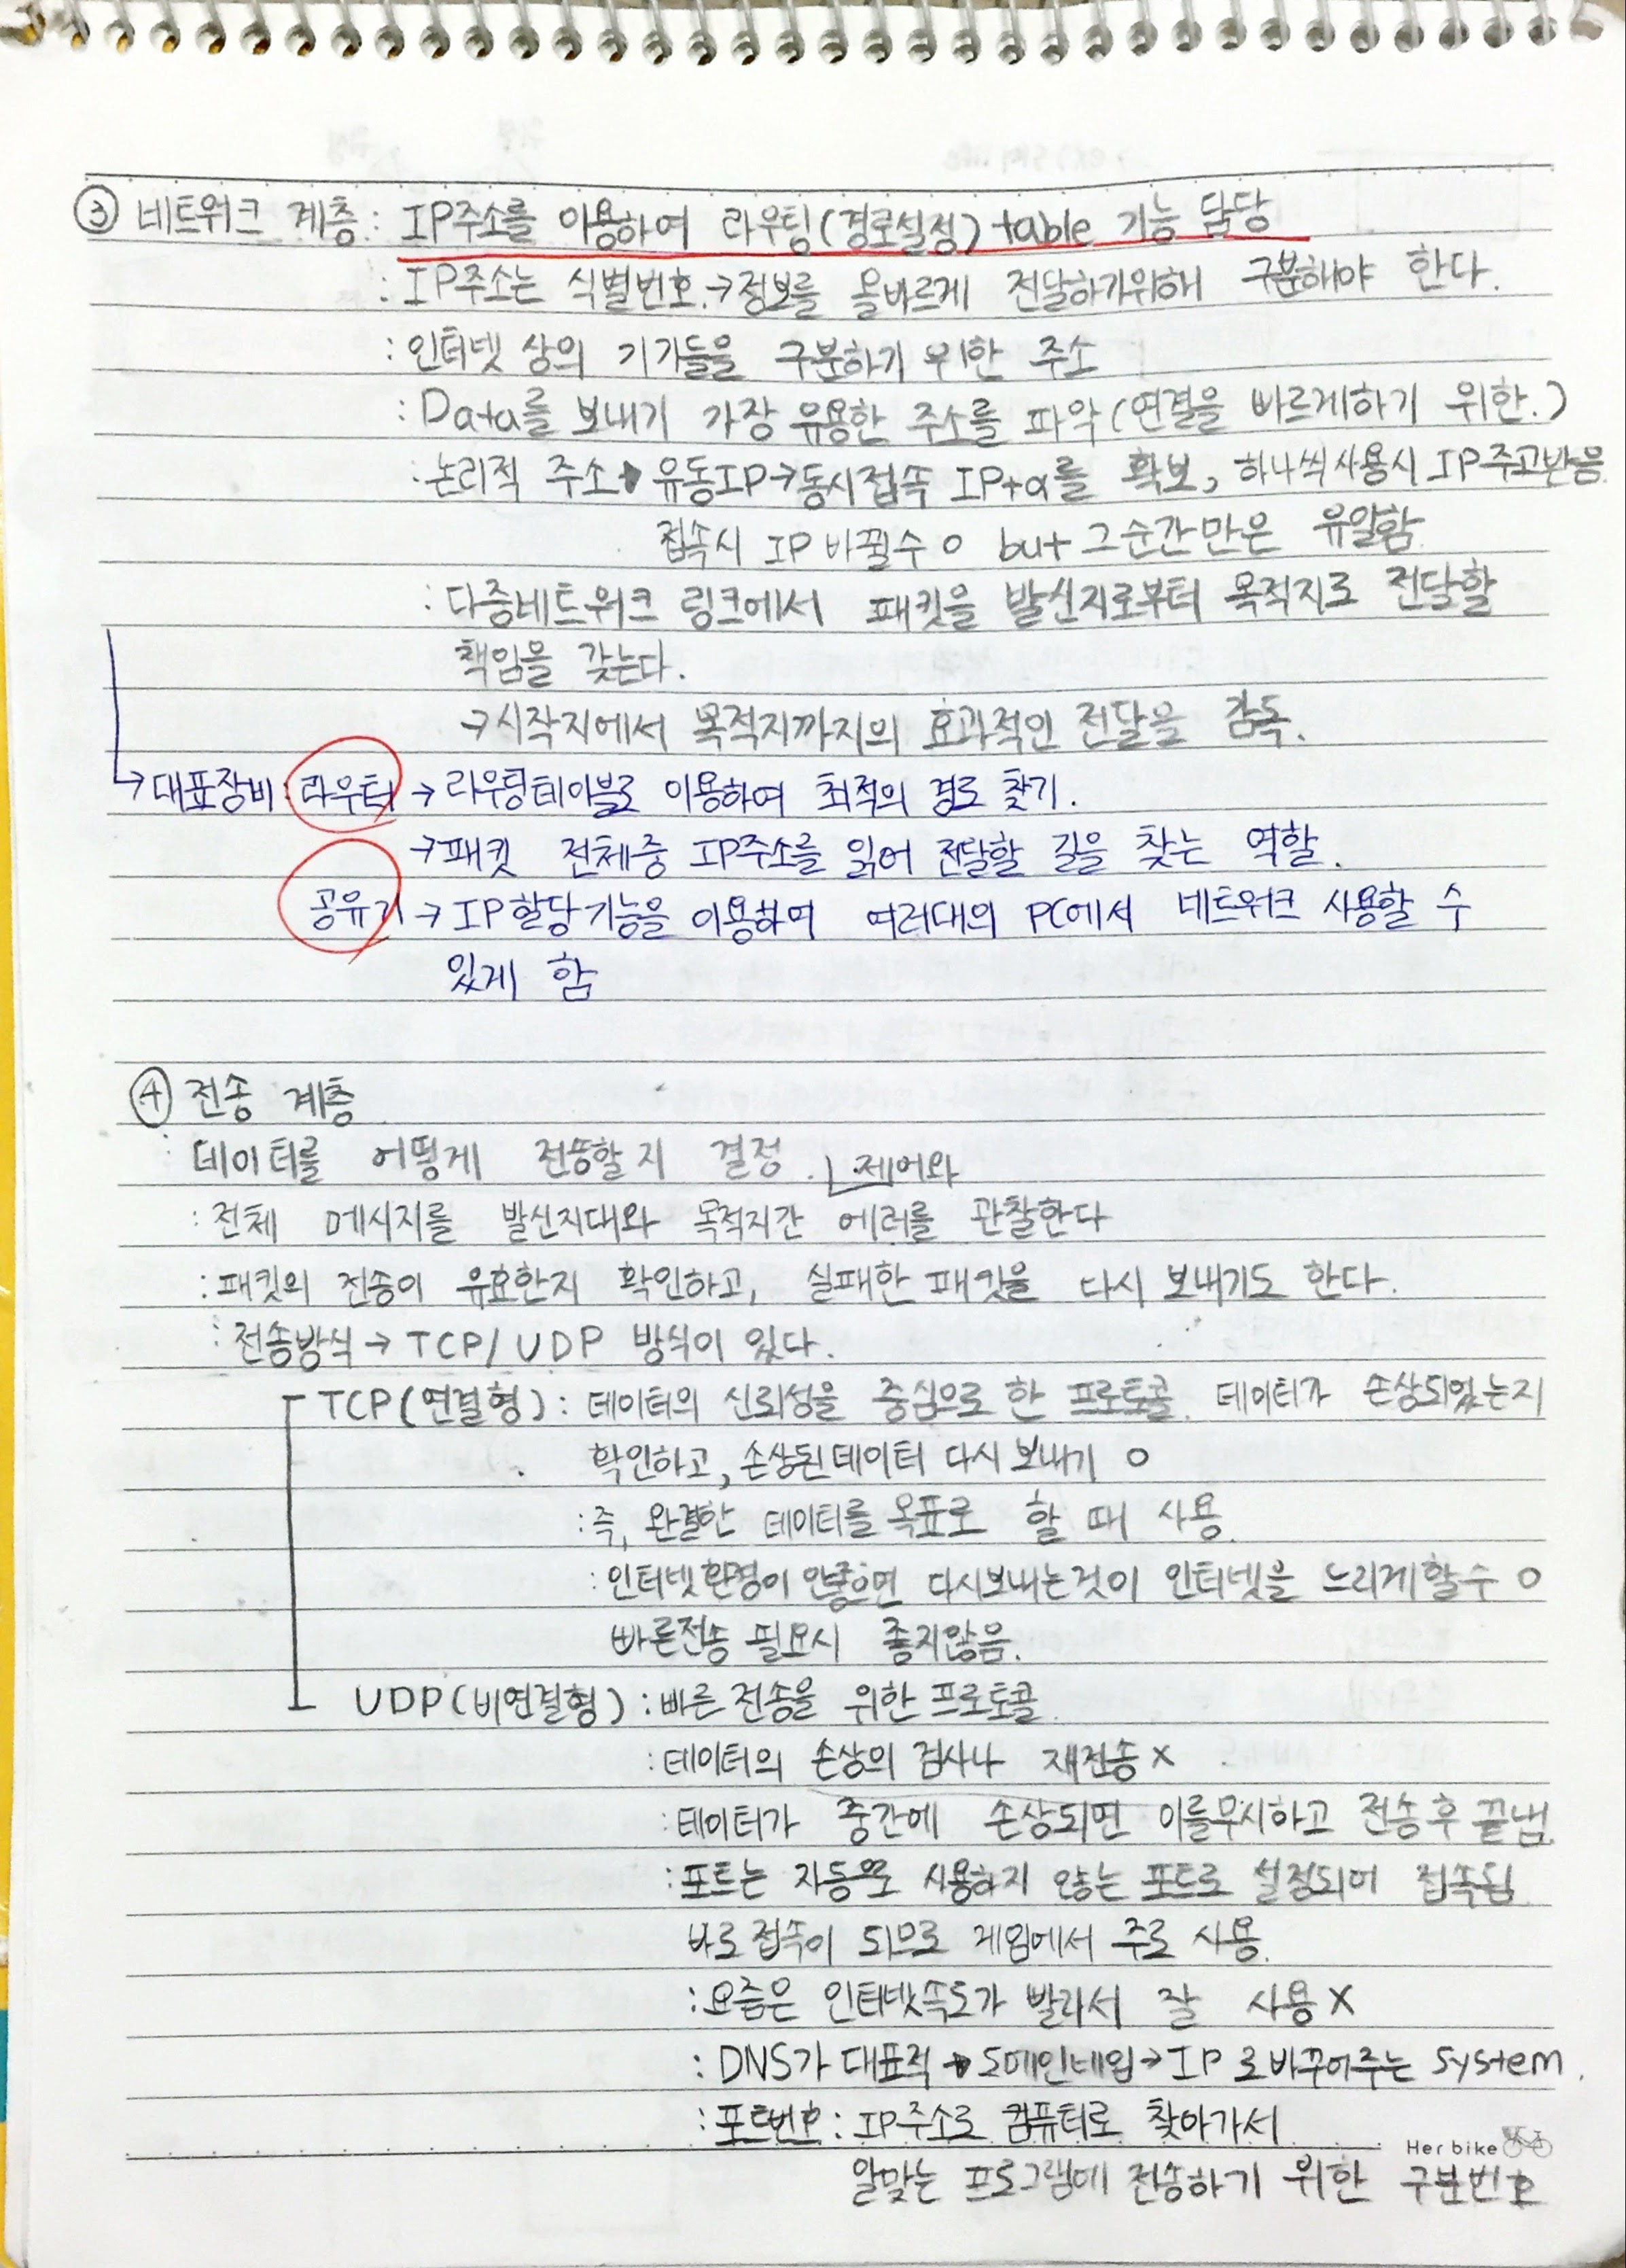 ③ 네트워크 계층 : IP주소를 이용하여 라우팅(경로설정) table 기능 담당
: IP주소는 식별번호.→정보를 올바르게 전달하기위해 구분해야 한다.
: 인터넷 상의 기기들을 구분하기 위한 주소
: Data를 보내기 가장 유용한 주소를 파악 (연결을 바르게하기 위한.)
: 논리적 주소→ 유동IP→동시접속 IP+α를 확보, 하나씩사용시 IP주고받음
접속시 IP 바뀔수 O but 그순간만은 유일함
: 다중네트워크 링크에서 패킷을 발신지로부터 목적지로 전달할
책임을 갖는다.
→시작지에서 목적지까지의 효과적인 전달을 감독.
→대표장비 : 라우터 → 라우팅테이블로 이용하여 최적의 경로 찾기.
→패킷 전체중 IP주소를 읽어 전달할 길을 찾는 역할.
공유기 → IP할당기능을 이용하여 여러대의 PC에서 네트워크 사용할 수
있게 함
④ 전송 계층
: 데이터를 어떻게 전송할지 결정. 제어와
: 전체 메시지를 발신지대와 목적지간 에러를 관찰한다
: 패킷의 전송이 유효한지 확인하고, 실패한 패킷을 다시 보내기도 한다.
: 전송방식 → TCP/UDP 방식이 있다.
TCP(연결형) : 데이터의 신뢰성을 중심으로 한 프로토콜. 데이터가 손상되었는지
확인하고, 손상된데이터 다시 보내기 O
: 즉, 완결한 데이터를 목표로 할 때 사용.
: 인터넷환경이 안좋으면 다시보내는것이 인터넷을 느리게할수 O
빠른전송 필요시 좋지않음.
UDP(비연결형) : 빠른 전송을 위한 프로토콜.
: 데이터의 손상의 검사나 재전송 X
: 데이터가 중간에 손상되면 이를무시하고 전송 후 끝냄.
: 포트는 자동으로 사용하지 않는 포트로 설정되어 접속됨
바로 접속이 되므로 게임에서 주로 사용.
: 요즘은 인터넷속도가 빨라서 잘 사용 X
: DNS가 대표적 → 도메인네임→IP로바꾸어주는 system.
: 포트번호 : IP주소로 컴퓨터로 찾아가서
Her bike
알맞는 프로그램에 전송하기 위한 구분번호